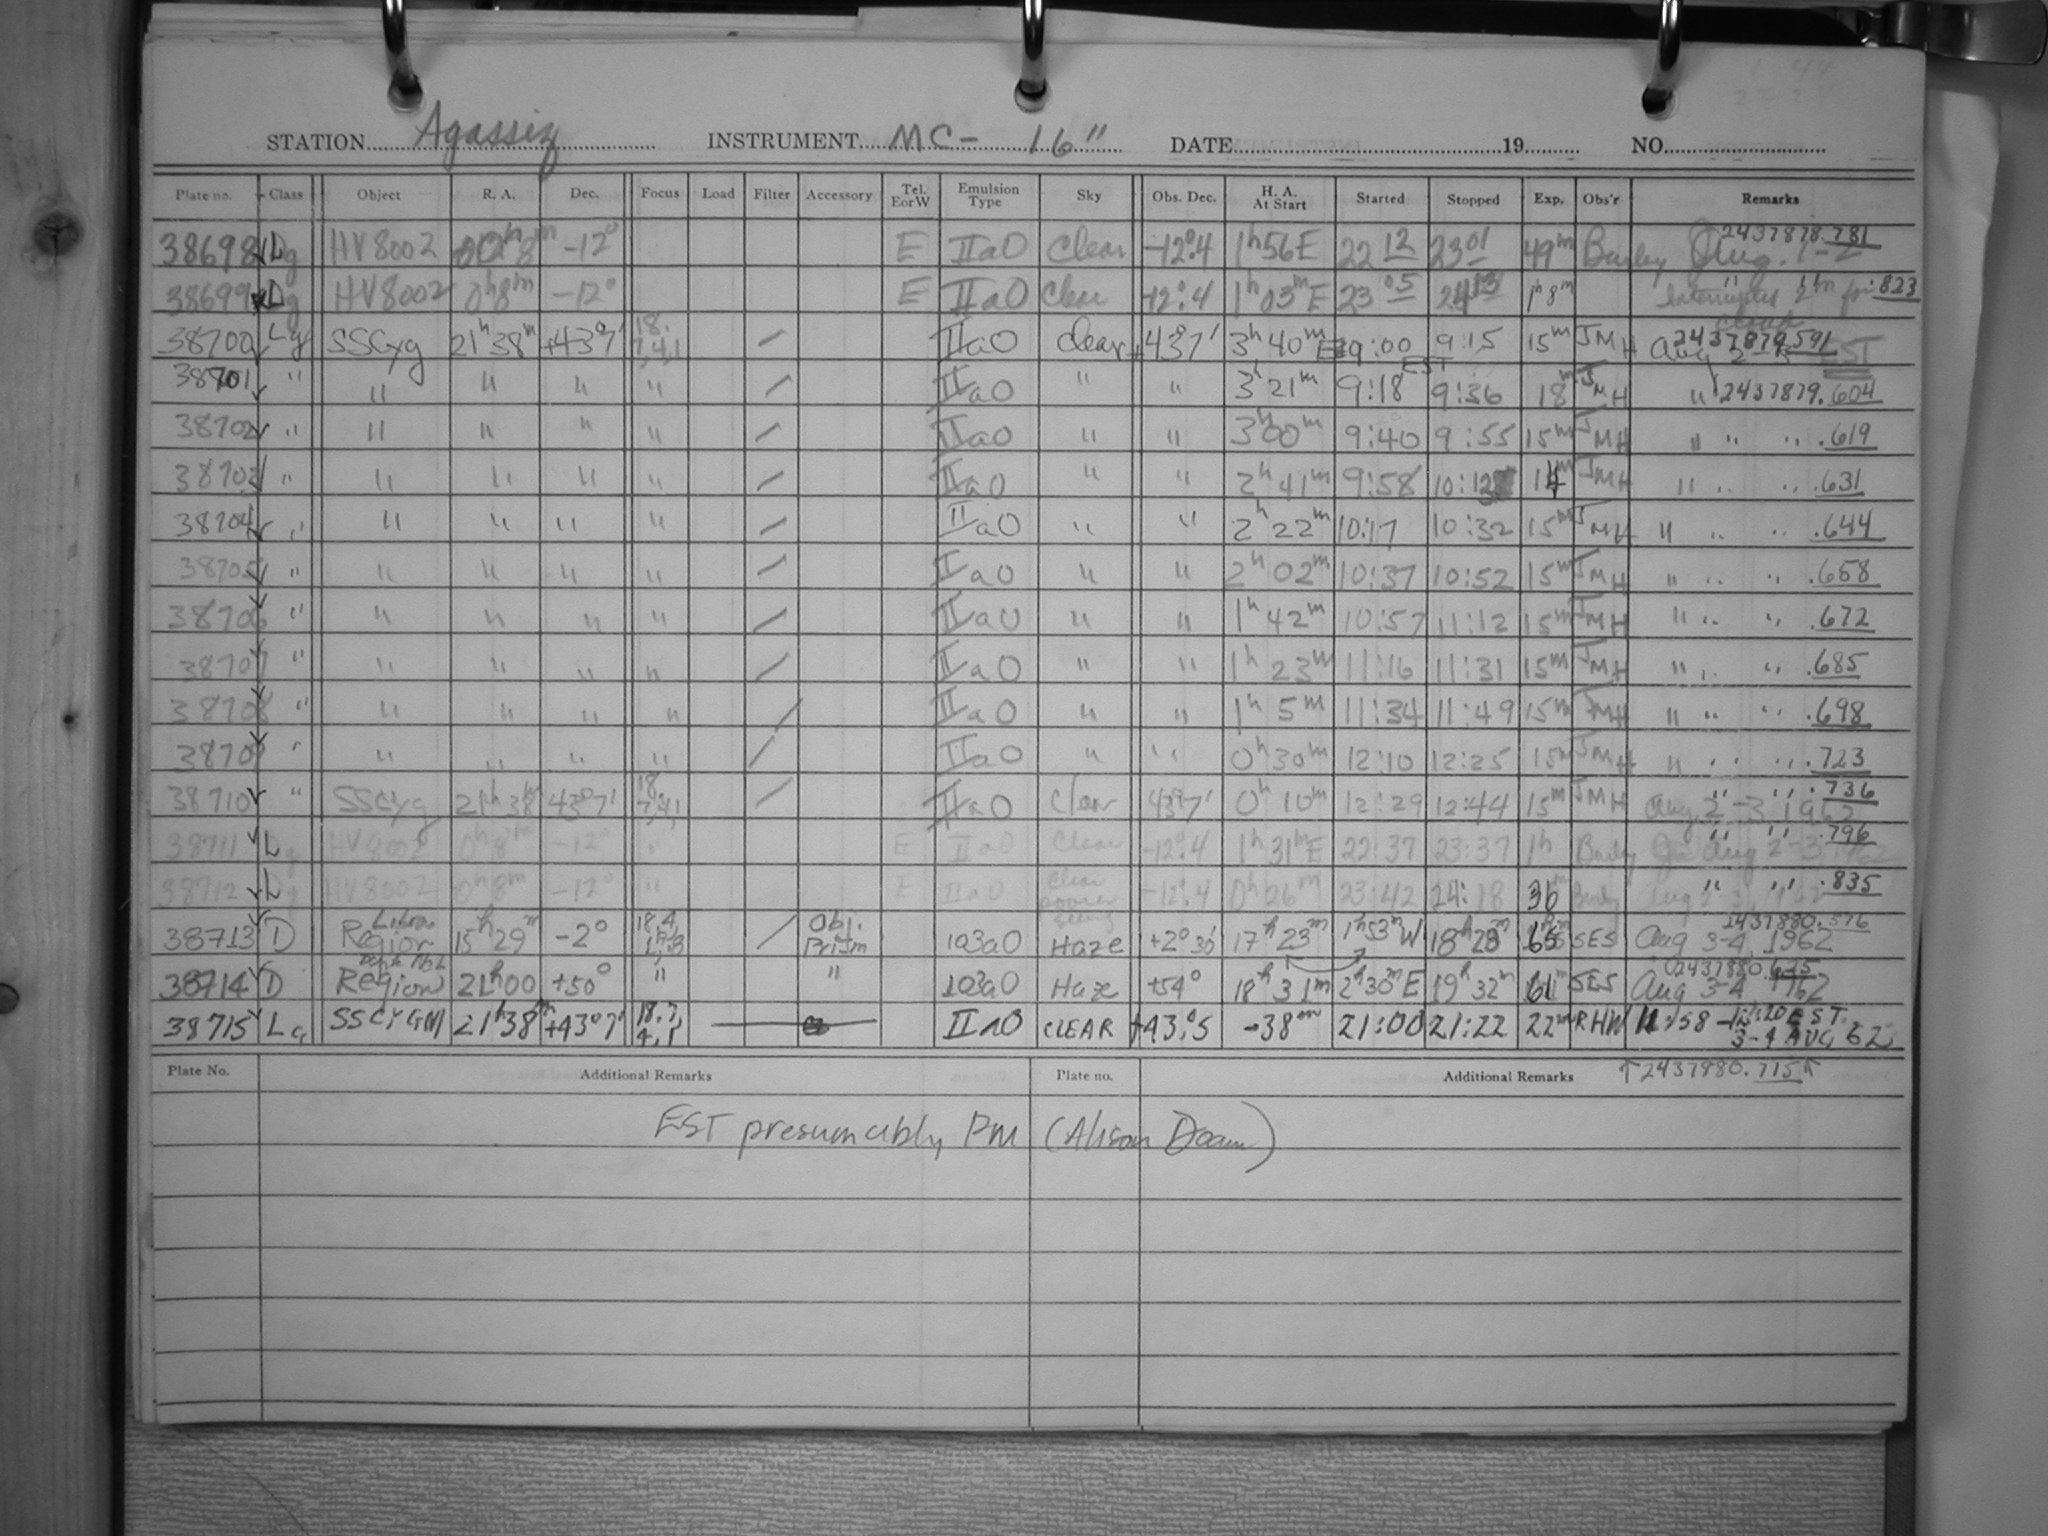 STATION Agassiz INSTRUMENT MC- 16" DATE 19 NO.
Plate no. Class Object R. A. Dec. Focus Load Filter Accessory Tel. E or W Emulsion Type Sky Obs. Dec. H. A. At Start Started Stopped Exp. Obs'r Remarks
38698 √ Lg HV8002 00ʰ8ᵐ -12° E IIaO Clear -12°.4 1ʰ56E 22 12 23 01 49ᵐ 2437878.781 Aug. 1-2
38699 Lg HV8002 0ʰ8ᵐ -12° E IIaO Clear -12°.4 1ʰ03ᵐE 23 05 24 13 1ʰ8ᵐ " Interrupted 2ᵐ for cloud .823
38700 √ Lg SSCyg 21ʰ38ᵐ +43°7' 18. 7,4,1 / IIaO Clear +43°7' 3ʰ40ᵐE 9:00 EST 9:15 15ᵐ JMH 2437879.591 Aug 2-3 EST
38701 √ " " " " " / IIaO " " 3ʰ21ᵐ 9:18 9:36 18ᵐ JMH " 2437879.604
38702 √ " " " " " / IIaO " " 3ʰ00ᵐ 9:40 9:55 15ᵐ JMH " " " .619
38703 √ " " " " " / IIaO " " 2ʰ41ᵐ 9:58 10:12 14ᵐ JMH " " " .631
38704 √ " " " " " / IIaO " " 2ʰ22ᵐ 10:17 10:32 15ᵐ JMH " " " .644
38705 √ " " " " " / IIaO " " 2ʰ02ᵐ 10:37 10:52 15ᵐ JMH " " " .658
38706 √ " " " " " / IIaO " " 1ʰ42ᵐ 10:57 11:12 15ᵐ JMH " " " .672
38707 √ " " " " " / IIaO " " 1ʰ23ᵐ 11:16 11:31 15ᵐ JMH " " " .685
38708 √ " " " " " / IIaO " " 1ʰ5ᵐ 11:34 11:49 15ᵐ JMH " " " .698
38709 √ " " " " " / IIaO " " 0ʰ30ᵐ 12:10 12:25 15ᵐ JMH " " " .723
38710 √ " SSCyg 21ʰ38ᵐ 43°7' 18, 7,4,1 / IIaO Clear 43°7' 0ʰ10ᵐ 12:29 12:44 15ᵐ JMH " " .736 Aug 2-3 1962
38711 √ Lg HV8002 0ʰ8ᵐ -12° " E IIaO Clear -12°.4 1ʰ31ᵐE 22:37 23:37 1ʰ " " .796 Aug 2-3, 1962
38712 √ Lg HV8002 0ʰ8ᵐ -12° " E IIaO Clear poorer seeing -12°.4 0ʰ26ᵐ 23:42 24:18 36 " " .835 Aug 2-3, 1962
38713 √ D Libra Region 15ʰ29ᵐ -2° 18,4, / Obj. Prism 103aO Haze +2°30' 17ʰ23ᵐ 1ʰ53ᵐW 18ʰ28ᵐ 65ᵐ SES 2437880.576 Aug 3-4, 1962
38714 √ D Region 21ʰ00 +50° " " 103aO Haze +54° 18ʰ31ᵐ 2ʰ30ᵐE 19ʰ32ᵐ 61ᵐ SES 2437880.675 Aug 3-4 1962
38715 √ Lg SS CYGNI 21ʰ38ᵐ +43°7' 18.7, 4,1 IIaO CLEAR +43°.5 -38ᵐ 21:00 21:22 22ᵐ RHW 11:58 - 12:20 EST 3-4 AUG 62
↑2437880.715↑
Plate No. Additional Remarks Plate no. Additional Remarks
EST presumably PM (Alison Doane)